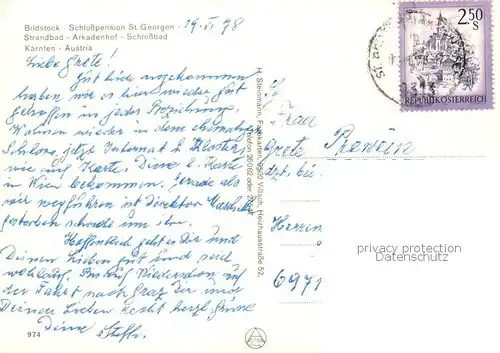 Bildstock - Schloßpension St. Georgen -
Strandbad - Arkadenhof - Schloßbad
Kärnten - Austria
14. VI 78
Liebe Grete!
Gut hier angekommen
haben wir es hier wieder gut
getroffen in jeder Beziehung.
Wohnen wieder in dem ehemaligen
Schloss, jetzt Internat b. Kloster,
wie auf Karte. Deine l. Karte
in Wien bekommen. Gerade als
wir wegführen ist Direktor
gestorben schade um ihn.
Hoffentlich geht es Dir und
Deinen Lieben gut und seid
wohlauf. Wiedersehen auf
der Fahrt nach Graz Dir und
Deinen Lieben recht herzl. Grüsse
Deine
974
H. Steinmann, Farbkarten, 9500 Villach, Heizhausstraße 52,
Frau
Grete
dzt. bei
Herren
6971
2.50
S
REPUBLIK ÖSTERREICH
privacy protection
Datenschutz